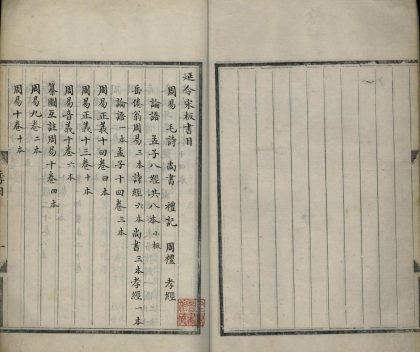 延令宋板書目
周易 毛詩 尚書 禮記 周禮 孝經
論語 孟子八經共八本小板
岳倦翁周易三本詩經六本尚書三本孝經一本
論語一本孟子十四卷三本
周易正義十四卷四本
周易正義十三卷十本
周易音義十卷六本
纂圖互註周易十卷四本
周易九卷二本
周易十卷十本